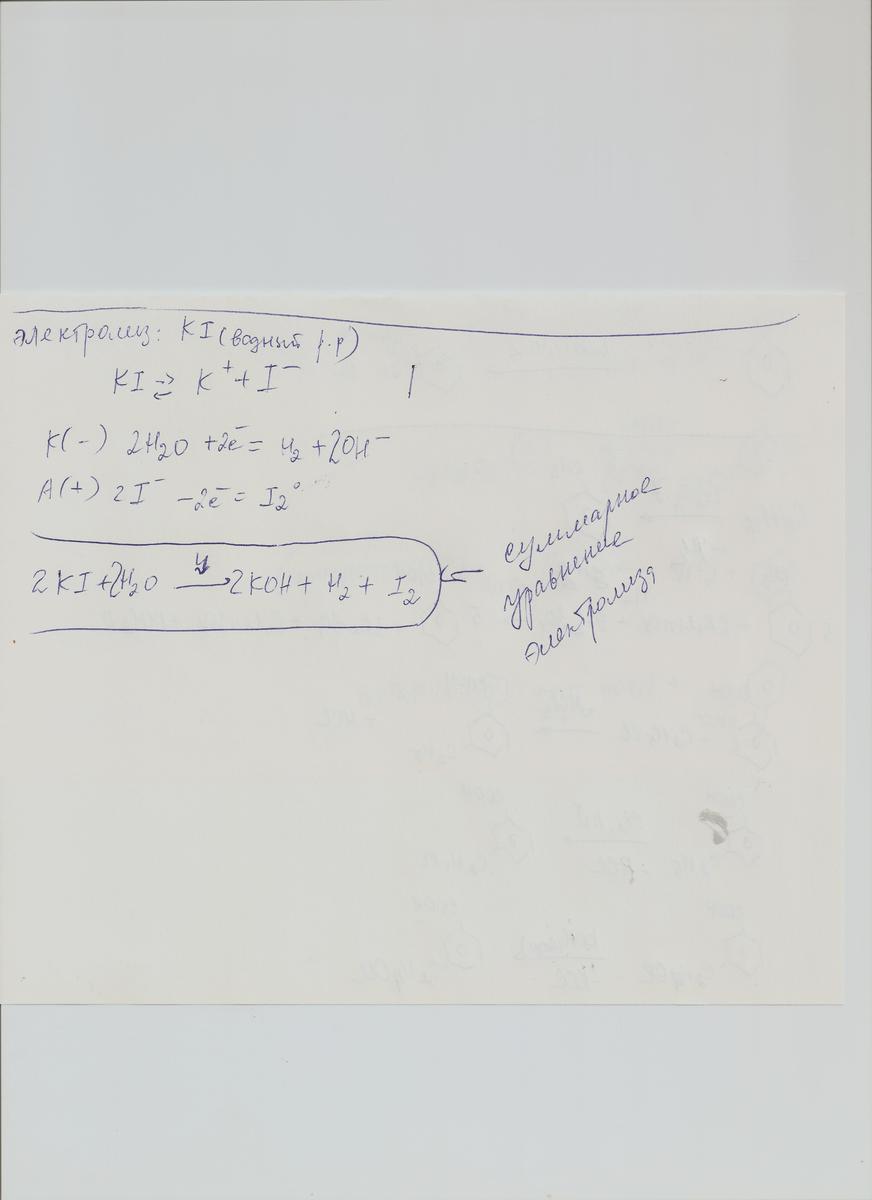 электролиз: KI (водный р-р)
KI ⇄ K⁺ + I⁻
K(-) 2H₂O +2e̅ = H₂ + 2OH⁻
A(+) 2I⁻ -2e̅ = I₂⁰
2KI + 2H₂O → 2KOH + H₂ + I₂
суммарное
уравнение
электролиза